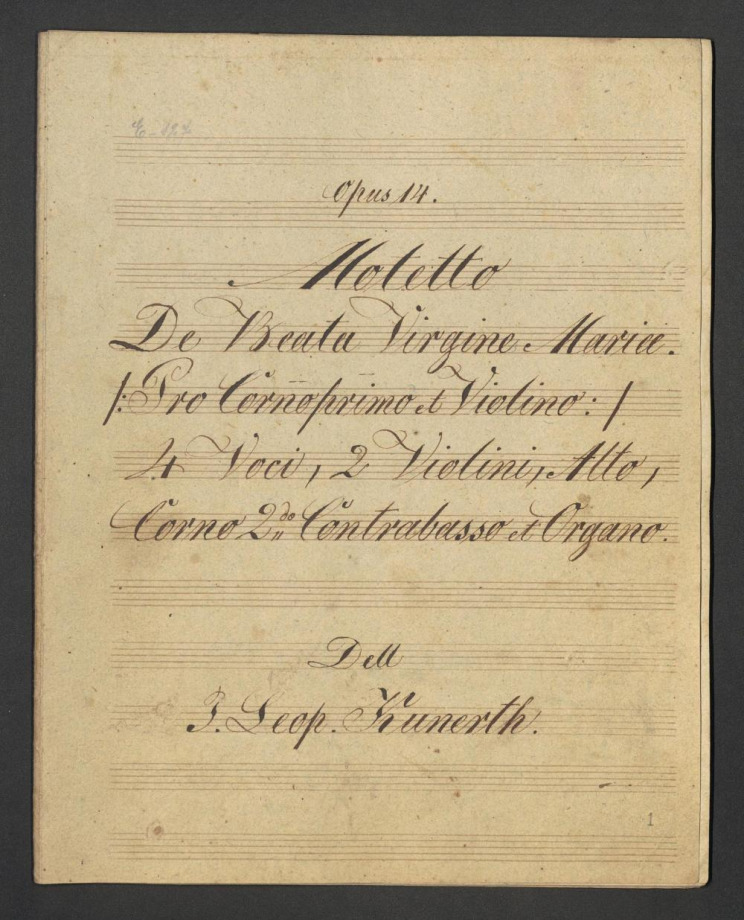 Opus 14.
Motetto
De Beata Virgine Mariæ.
/: Pro Corno primo et Violino: /
4 Voci, 2 Violini, Alto,
Corno 2do Contrabasso et Organo.
Dell
J. Leop. Kunerth.
1